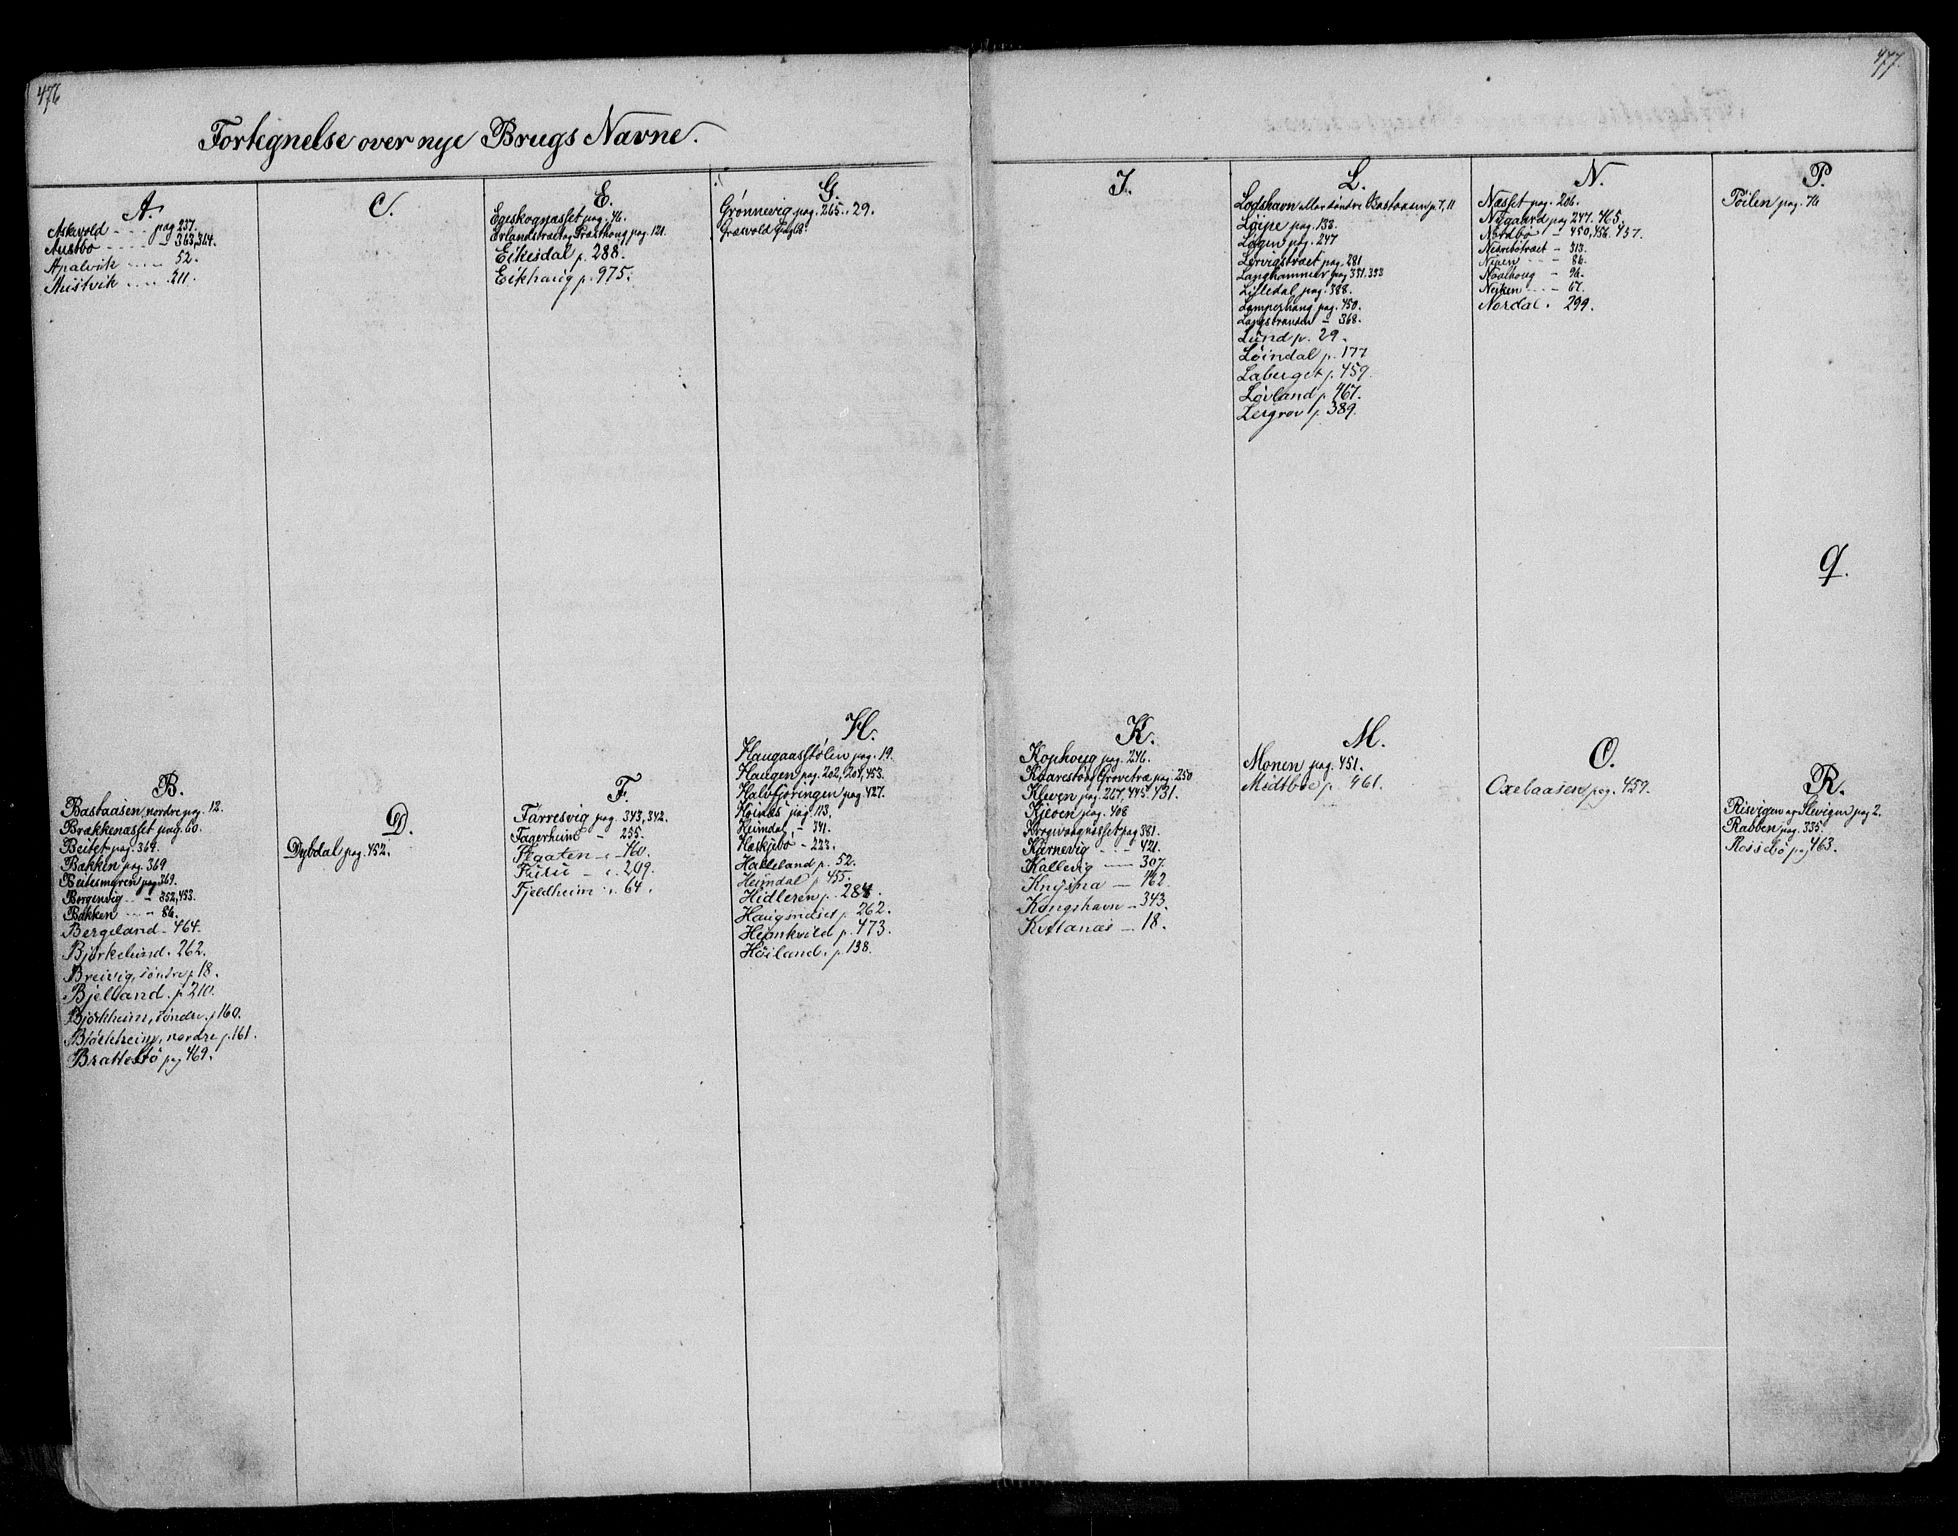 476
Fortegnelse over nye Brugs Navne.
A.
Askvold - - - pag 237.
Austbø - - - - " 363, 364.
Apalvik - - - - 52.
Austvik - - - - 211.
B.
Bastaasen, nordre pag. 12.
Brækkenæsset pag. 60.
Beitet pag. 369.
Bakken pag. 369
Beitesmyren pag 369.
Borgenvig - - 352, 453.
Bakken - - - 86.
Bergeland - 464.
Bjørkelund. 262.
Breivig, søndre p 18.
Bjelland. p 210.
Bjørkheim, søndre. p 160.
Bjørkheim, nordre p. 161.
Brattestø pag 469.
C.
D.
Dybdal pag. 452.
E.
Egeskognæsset pag. 46.
Erlandstræet og Præsthoug pag. 121.
Eikisdal p. 288.
Eikhaug p. 975.
F.
Farresvig pag. 343, 342.
Fagerheim - 255.
Flaaten - " - 160.
Furu - " 209.
Fjeldheim " 64.
G.
Grønnevig pag. 265. 29.
Græsvold
H.
Haugaasstølen pag. 19.
Haugen pag. 202, 204, 453.
Halvfjøringen pag. 427.
Høinæs pag. 113.
Heimdal - 341.
Hæskjebø - 223.
Halleland p. 52.
Heimdal p 455.
Hidleren p. 284.
Haugsneset p. 262.
Heimkvild p. 473.
Høiland. p. 138.
477.
I.
K.
Kophoug pag. 246.
Kaarestøog Grovetræ pag. 250
Kleven pag. 227, 445. 431.
Kjeven pag. 408
Krogevaagnæsset pag 381.
Kjernevig - - - 421.
Kallevig - 307.
Knysna - 162.
Kongshavn - 343.
Kvitanæs - 18.
L.
Lodshavn eller søndre Bastaasen p. 7, 11
Løipe pag. 133.
Løgen pag. 247
Lervigstræet pag. 281
Langhammer pag 351. 353
Lilledal pag. 388.
Lamperhaug pag. 450.
Langstranden - 368.
Lund p. 29.
Løindal p. 177
Laberget p. 459.
Løvland p. 467.
Lergrov p. 389.
M.
Monen pag. 451.
Midtbø p. 461.
N.
Næsset pag. 286.
Nygaard pag 247. 465.
Nordbø - 450, 456. 457.
- 313.
- - 86.
- 94.
- - - 67.
Nordal. 299.
O.
Oxebaasen pag. 459.
P.
Pøilen pag. 74
Q.
R.
Risvigen og Slevigen pag 2.
Rabben pag. 335.
Rossebø pag 463.